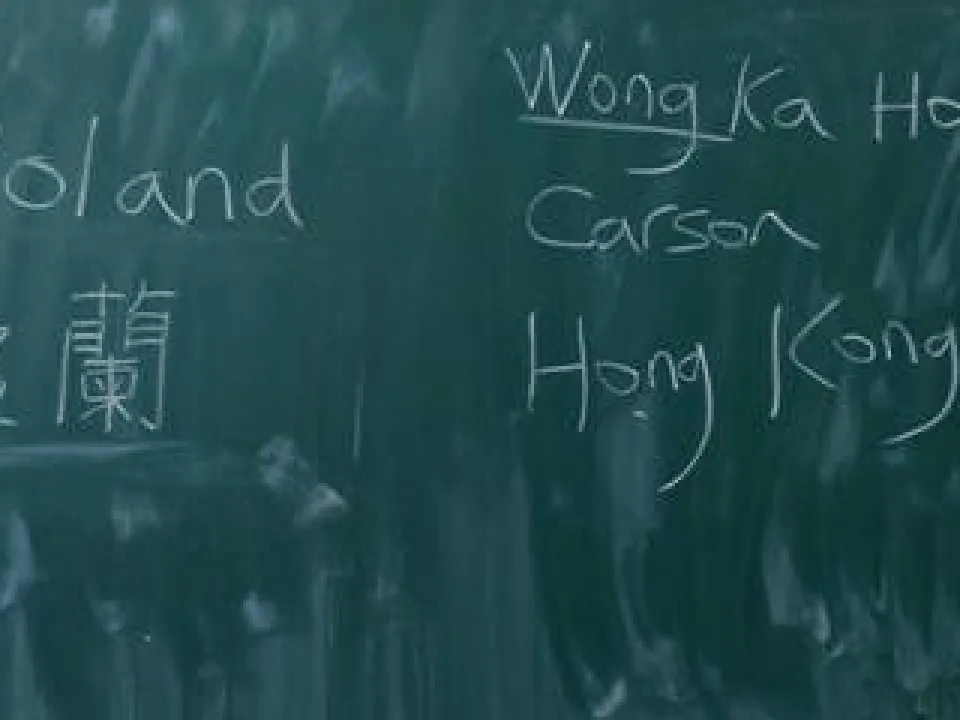 oland
蘭
Wong Ka Ho
Carson
Hong Kong